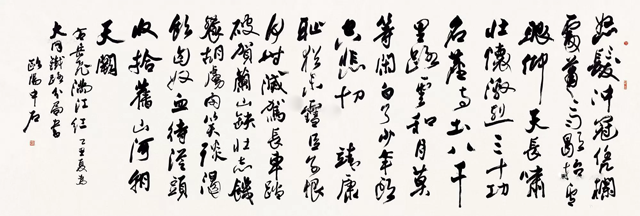 怒髮沖冠凭欄
處蕭々雨歇抬望
眼仰天長嘯
壯懷激烈三十功
名塵与土八千
里路雲和月莫
等閑白了少年頭
空悲切 靖康
恥猶未雪臣子恨
何时滅駕長車踏
破賀蘭山缺壯志饑
餐胡虜肉笑談渴
飲匈奴血待從頭
收拾舊山河朝
天闕
右岳飛滿江紅 丁丑夏為
大同鐵路分局書
歐陽中石